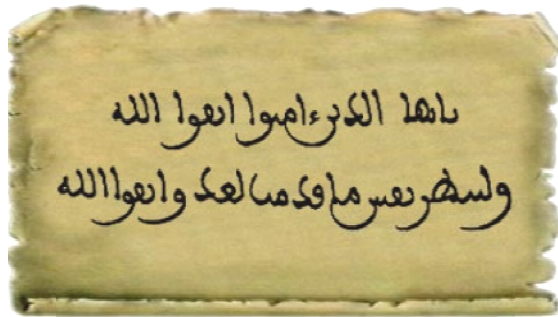 ٮاٮها الدٮں ءامٮوا اٮٯوا الله
ولٮٮطر ٮڡس ما ٯدمٮ لعد واٮٯوا الله